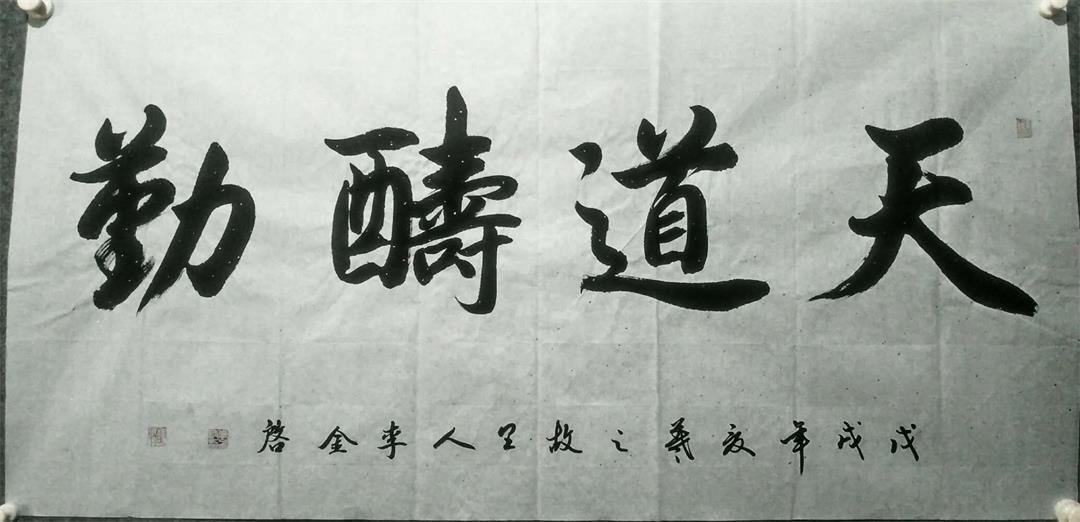 天道醻勤
戊戌年夏羲之故里人李金啓